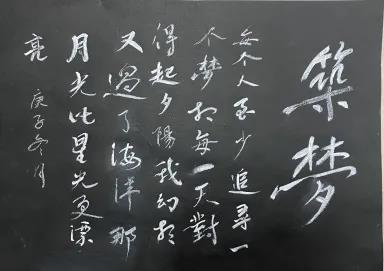 築夢
每个人至少追尋一
个夢想每一天對
得起夕陽我幻想
又過了海洋那
月光比星光更漂
亮
庚子冬月